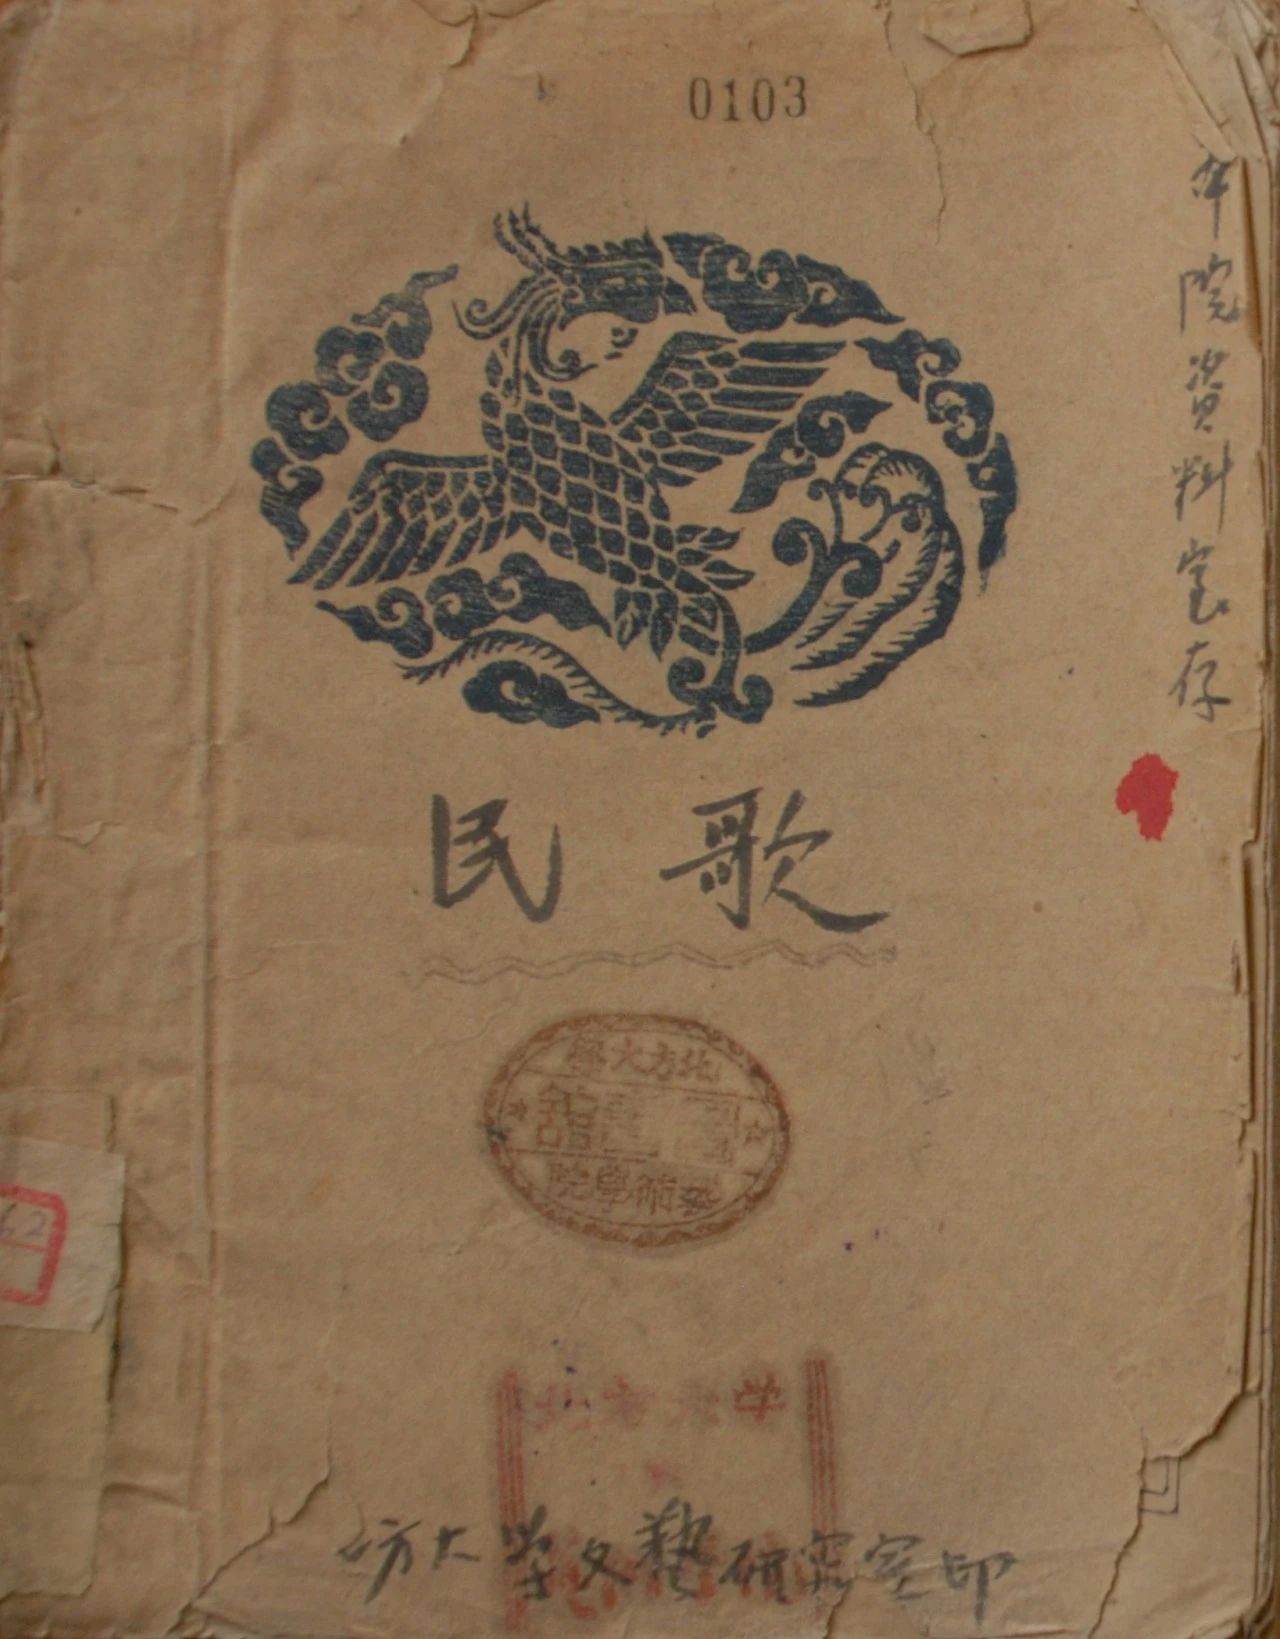 0103
院资料室存
民歌
北方大學
圖書館
藝術學院
方大学文藝研究室印
62